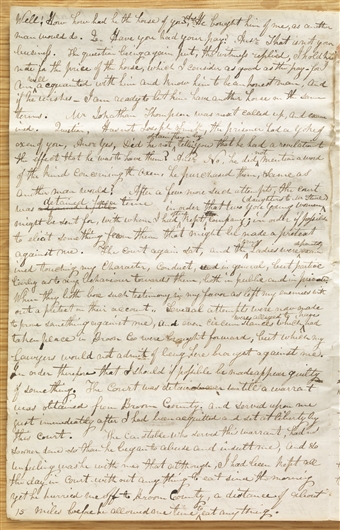 Well! How how had he the horse of you? Ans He bought him of me, as another
man would do. Q. Have you had your pay? Ans. That is not your
business. The question being again put, the witness replied, I hold his
note for the price of the horse, which I consider as good as the pay; for I
am well acquainted with him and know him to be an honest man, and
if he wishes I am ready to let him have another horse on the same
terms. Mr. Jonathan Thompson was next called up, and exam
ined. Question, Has not Joseph Smith, the prisoner had a yoke of
oxen of you, Ans. yes, Did he not, obtain them of you by telling you that he had a revelation to
the effect that he was to have them? Ans. No, he did not mention a word
of the kind concerning the oxen, he purchased them, the same as
another man would? After a few more such attempts, the court
was detained for a time in order that two young women, daughters to Mr. Stoal
might be sent for, with whom I had kept company; in order, if possible
to elicit something from them that might be made a pretext
against me. The court again sat, and the ladies were
ined touching my character, conduct, in general, but particu
larly as to my behaviour towards them, both in public and in private
When they both bore such testimony in my favor as left my enemies with
out a pretext on their account. Several attempts were now made
to prove something against me, and even circumstances which had
taken place in Broom Co were brought forward; but which my
lawyers would not admit of being here brought against me.
in order therefore that I should if possible be made appear guilty
of something. The Court was detained untill a warrant
was obtained from Broom County, and served upon me
just immediately after I had been acquitted and set at liberty by
this court. The constable who served this warrant, had no
sooner done so than he began to abuse and insult me, and so
unfeeling was he with me that although, I had been kept all
the day in Court without any thing to eat since the morning
yet he hurried me off to Broom County, a distance of about
15 miles before he allowed me time to eat any thing.